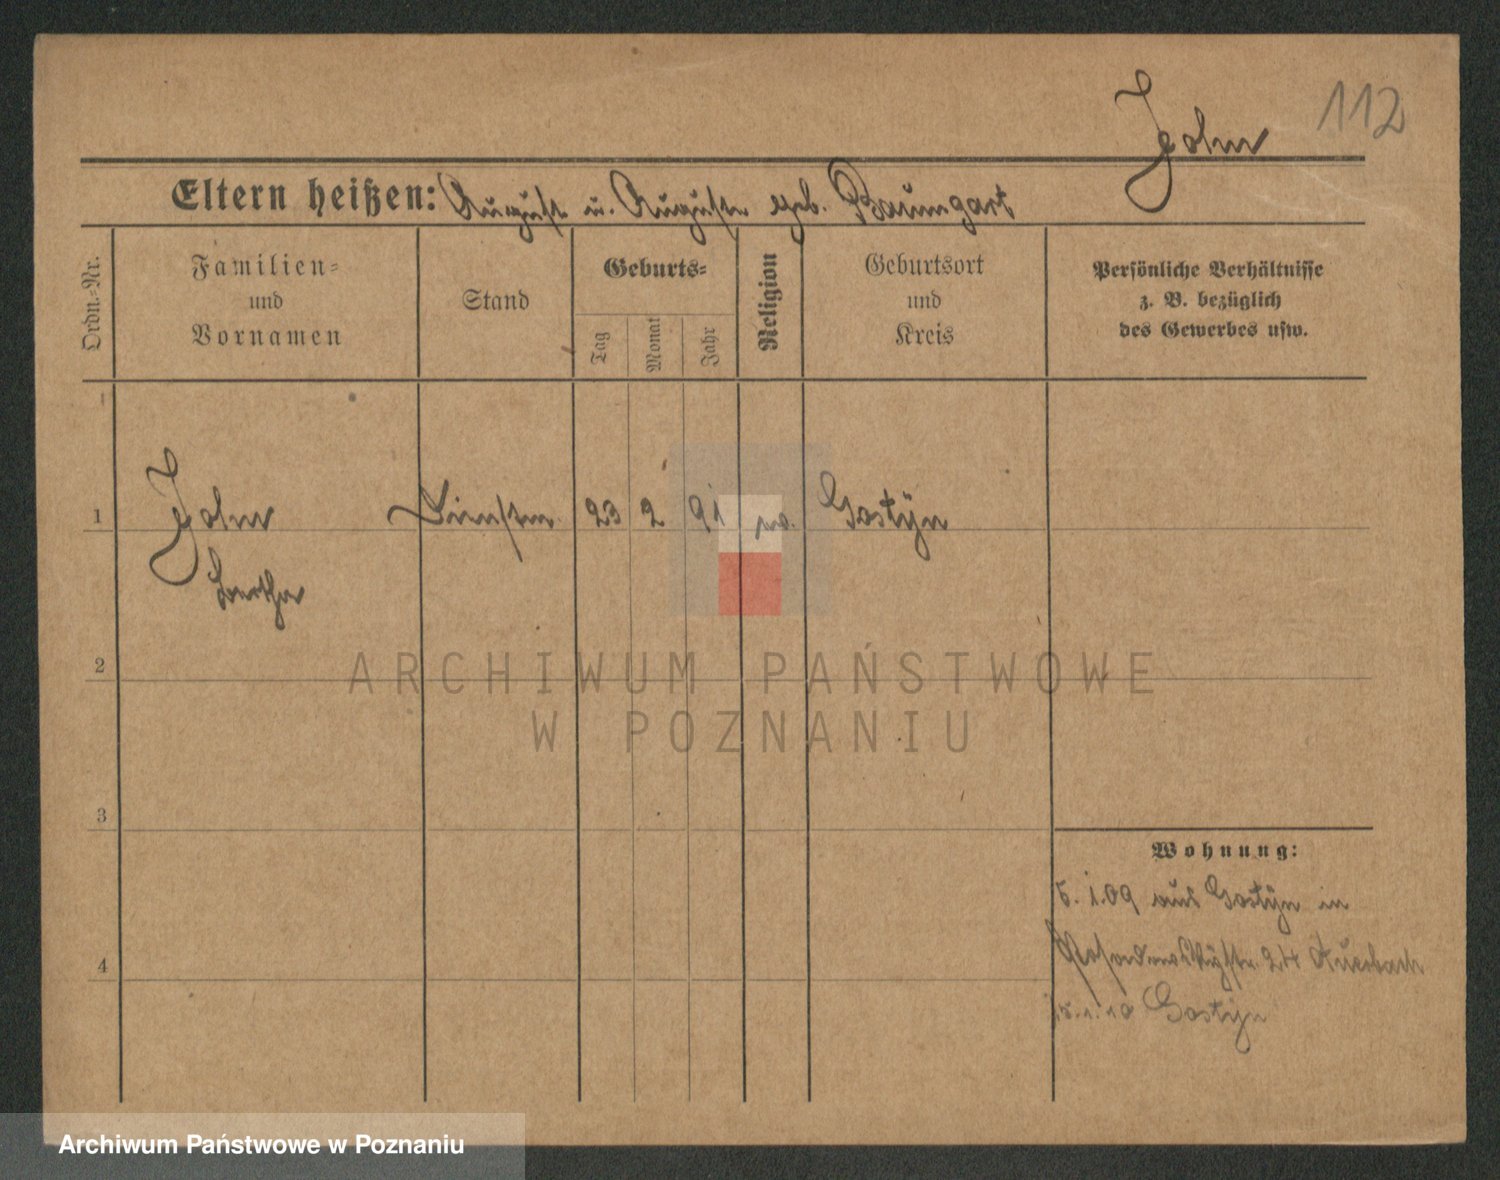 112
John
Eltern heißen: August u. Auguste geb. Baumgart
Ordn.-Nr.
Familien-
und
Vornamen
Stand
Geburts-
Tag
Monat
Jahr
Religion
Geburtsort
und
Kreis
Persönliche Verhältnisse
z. B. bezüglich
des Gewerbes usw.
1
John
Bertha
23 2 91 Gostyn
2
3
4
Wohnung:
5. 1. 09 aus Gostyn in
24 Auerbach
15. 1. 10 Gostyn
ARCHIWUM PAŃSTWOWE
W POZNANIU
Archiwum Państwowe w Poznaniu